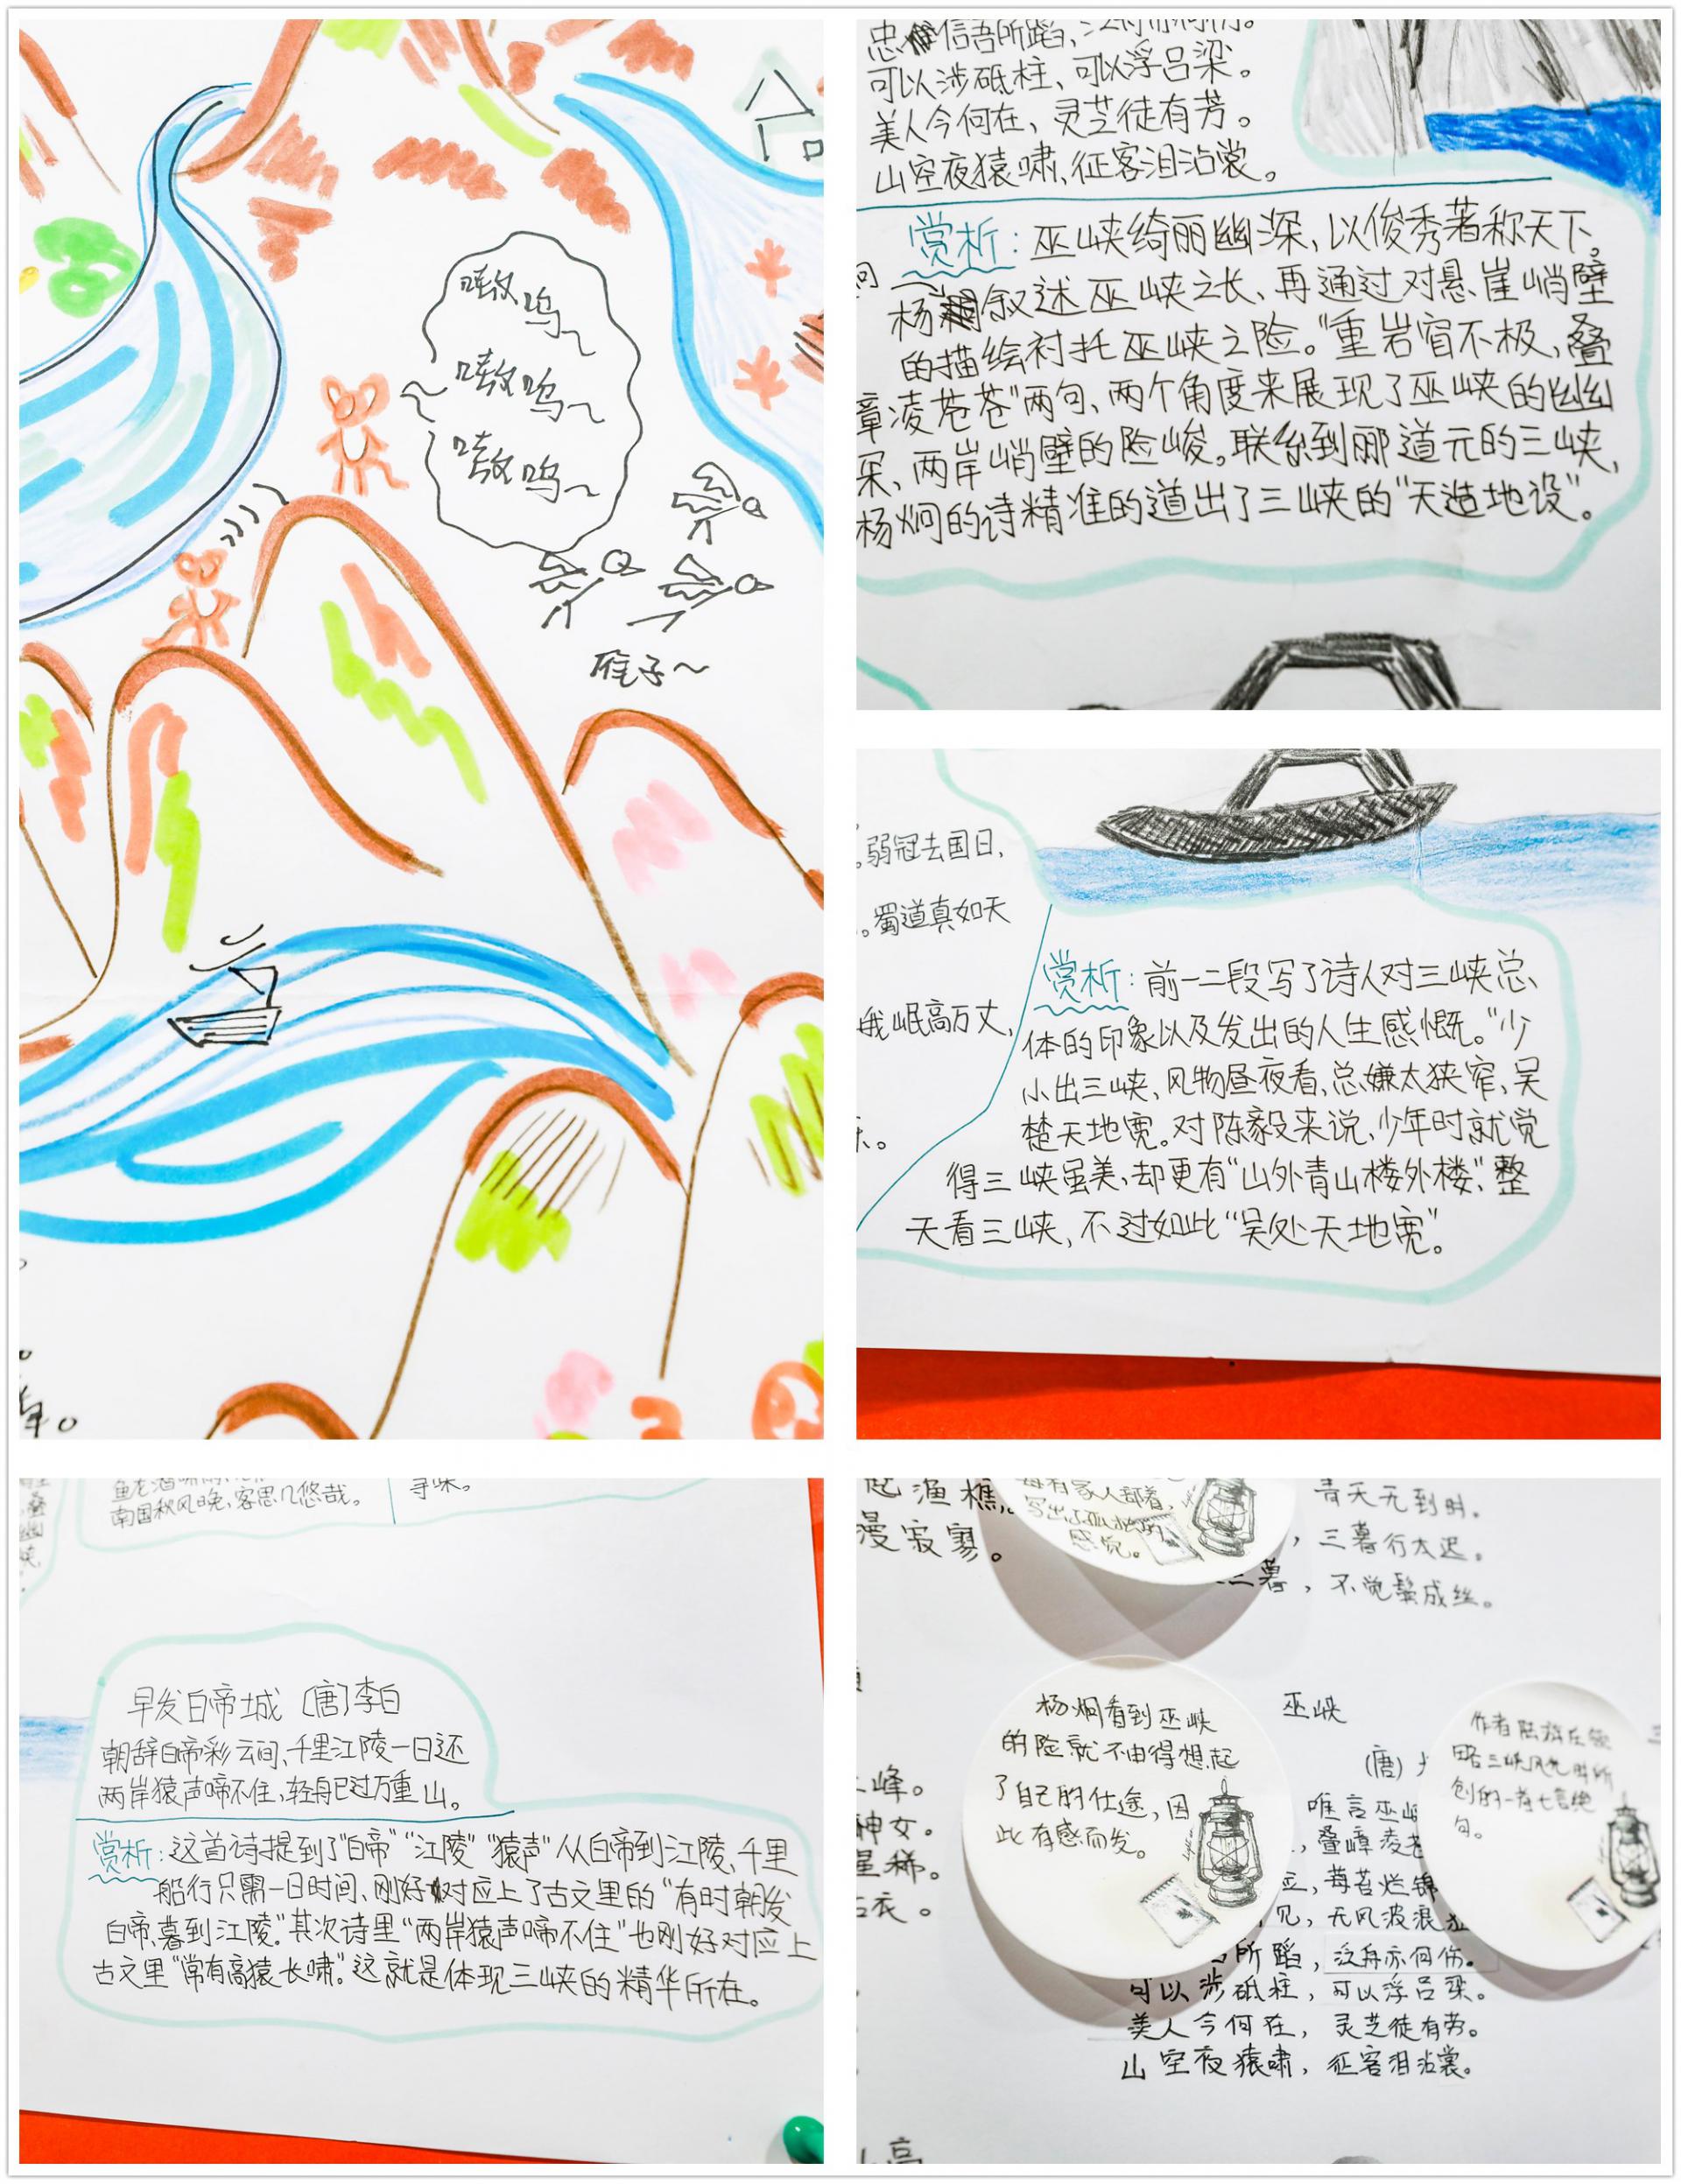 嗷呜~
嗷呜~
嗷呜~
雁子~
年。
可以涉砥柱、可以浮吕梁。
美人今何在、灵芝徒有芳。
山空夜猿啸、征客泪沾裳。
赏析：巫峡绮丽幽深、以俊秀著称天下。
杨炯叙述巫峡之长、再通过对悬崖峭壁
的描绘衬托巫峡之险。“重岩窅不极、叠
章凌苍苍”两句、两个角度来展现了巫峡的幽
采、两岸峭壁的险峻。联系到郦道元的三峡，
杨炯的诗精准的道出了三峡的“天造地设”。
弱冠去国日，
。蜀道真如天
峨岷高万丈，
赏析：前一二段写了诗人对三峡总
体的印象以及发出的人生感慨。“少
小出三峡，风物昼夜看，总嫌太狭窄，吴
楚天地宽。对陈毅来说，少年时就觉
得三峡虽美、却更有“山外青山楼外楼”，整
天看三峡，不过如此“吴处天地宽”。
南国秋风晚，客思几悠哉。
寻味。
早发白帝城 〔唐〕李白
朝辞白帝彩云间，千里江陵一日还
两岸猿声啼不住，轻舟已过万重山。
赏析：这首诗提到了“白帝”“江陵”“猿声”从白帝到江陵，千里
船行只需一日时间，刚好对应上了古文里的“有时朝发
白帝，暮到江陵”。其次诗里“两岸猿声啼不住”也刚好对应上
古文里“常有高猿长啸”。这就是体现三峡的精华所在。
渔樵，
漫寂寥。
每有家人部着，
感觉。
青天无到时。
，三暮行太迟。
三暮，不觉鬓成丝。
峰。
神女。
星稀。
衣。
杨炯看到巫峡
的险就不由得想起
了自己的仕途，因
此有感而发。
巫峡
（唐）
唯言巫
，叠嶂凌苍
，莓苔烂锦
，无风波浪
所蹈，泛舟亦何伤。
可以涉砥柱，可以浮吕梁。
美人今何在，灵芝徒有芳。
山空夜猿啸，征客泪沾裳。
作者陆游在领
略三峡风光时所
创的一首七言绝
句。
高